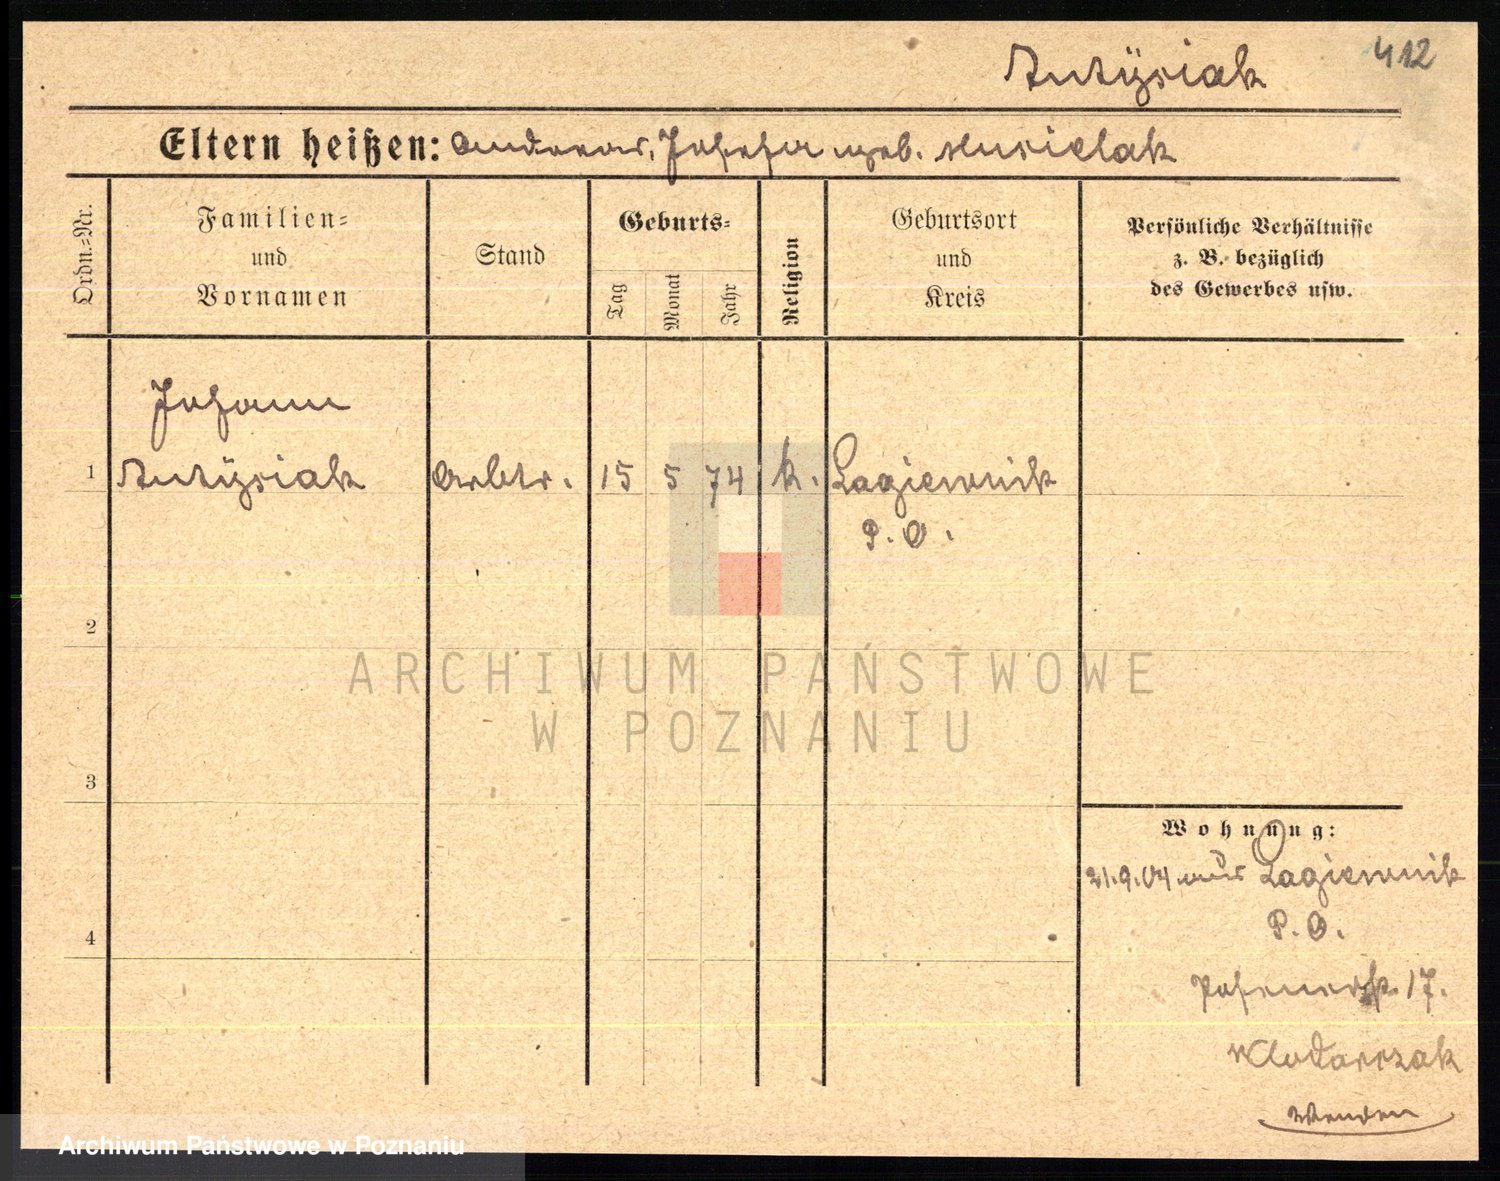 412
Antÿsiak
Eltern heißen: Andreas, Josefa geb. Musielak
Ordn.=Nr.
Familien=
und
Vornamen
Stand
Geburts=
Tag
Monat
Jahr
Religion
Geburtsort
und
Kreis
Persönliche Verhältnisse
z. B. bezüglich
des Gewerbes usw.
Johann
1 Antÿsiak Arbtr. 15 5 74 k. Lagiewnik
P. O.
2
3
4
Wohnung:
21.9.04 aus Lagiewnik
P. O.
Posenerstr. 17.
Wlodarczak
Wenden
ARCHIWUM PAŃSTWOWE
W POZNANIU
Archiwum Państwowe w Poznaniu